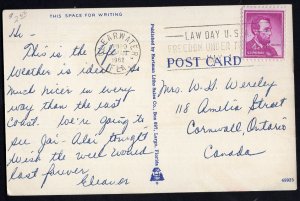 THIS SPACE FOR WRITING
Hi -
This is the life
Weather is ideal so
much nicer in every
way than the east
Coast. We're going to
see Jai-Alai tonight
Wish the week would
last forever.
Eleanor
CLEARWATER,
FLA.
1962
LAW DAY U.S.
FREEDOM UNDER
POST CARD
Mrs. W. G. Wersley
118 Amelia Street
Cornwall Ontario
Canada